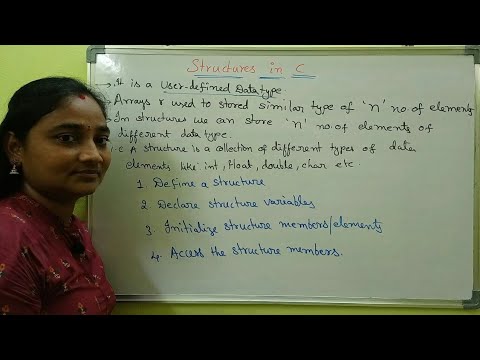 Structures in C
→ It is a User-defined Datatype.
→ Arrays r used to stored similar type of 'n' no. of elements
In structures we can store 'n' no. of elements of
different data type.
i.e A structure is a collection of different types of data
elements like int, float, double, char etc.
1. Define a structure
2. Declare structure variables
3. Initialize structure members/elements
4. Access the structure members.